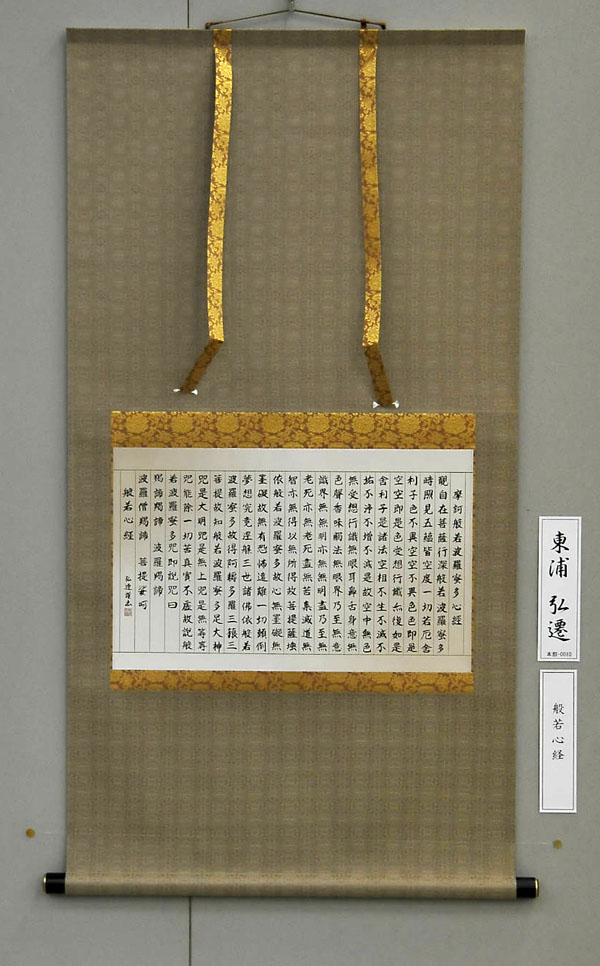 摩訶般若波羅蜜多心経
観自在菩薩行深般若波羅蜜多
時照見五蘊皆空度一切苦厄舎
利子色不異空空不異色色即是
空空即是色受想行識亦復如是
舎利子是諸法空相不生不滅不
垢不浄不増不減是故空中無色
無受想行識無眼耳鼻舌身意無
色聲香味觸法無眼界乃至無意
識界無無明亦無無明盡乃至無
老死亦無老死盡無苦集滅道無
智亦無得以無所得故菩提薩埵
依般若波羅蜜多故心無罣礙無
罣礙故無有恐怖遠離一切顛倒
夢想究竟涅槃三世諸佛依般若
波羅蜜多故得阿耨多羅三藐三
菩提故知般若波羅蜜多是大神
咒是大明咒是無上咒是無等等
咒能除一切苦真實不虚故説般
若波羅蜜多咒即説咒曰
羯諦羯諦 波羅羯諦
波羅僧羯諦 菩提娑呵
般若心経
弘遷
東浦 弘遷
般若心経